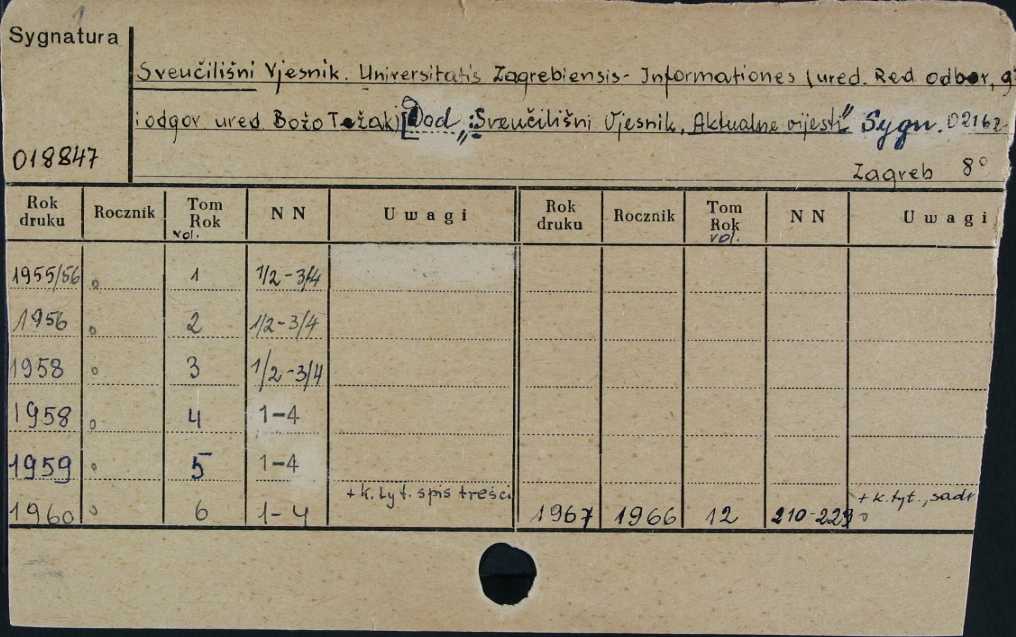 Sygnatura
Sveučilišni Vjesnik. Universitatis Zagrebiensis- Informationes (ured. Red odbor,
i odgov ured Božo Težak) [Dod „Sveučilišni Vjesnik. Aktualne vijesti" Sygn. 02162
018847
Zagreb 8°
Rok druku Rocznik Tom Rok vol. NN Uwagi Rok druku Rocznik Tom Rok vol. NN Uwagi
1955/56 ° 1 1/2-3/4
1956 ° 2 1/2-3/4
1958 ° 3 1/2-3/4
1958 ° 4 1-4
1959 ° 5 1-4
1960 ° 6 1-4 +k.tyt. spis treści 1967 1966 12 210-229 +k.tyt.,